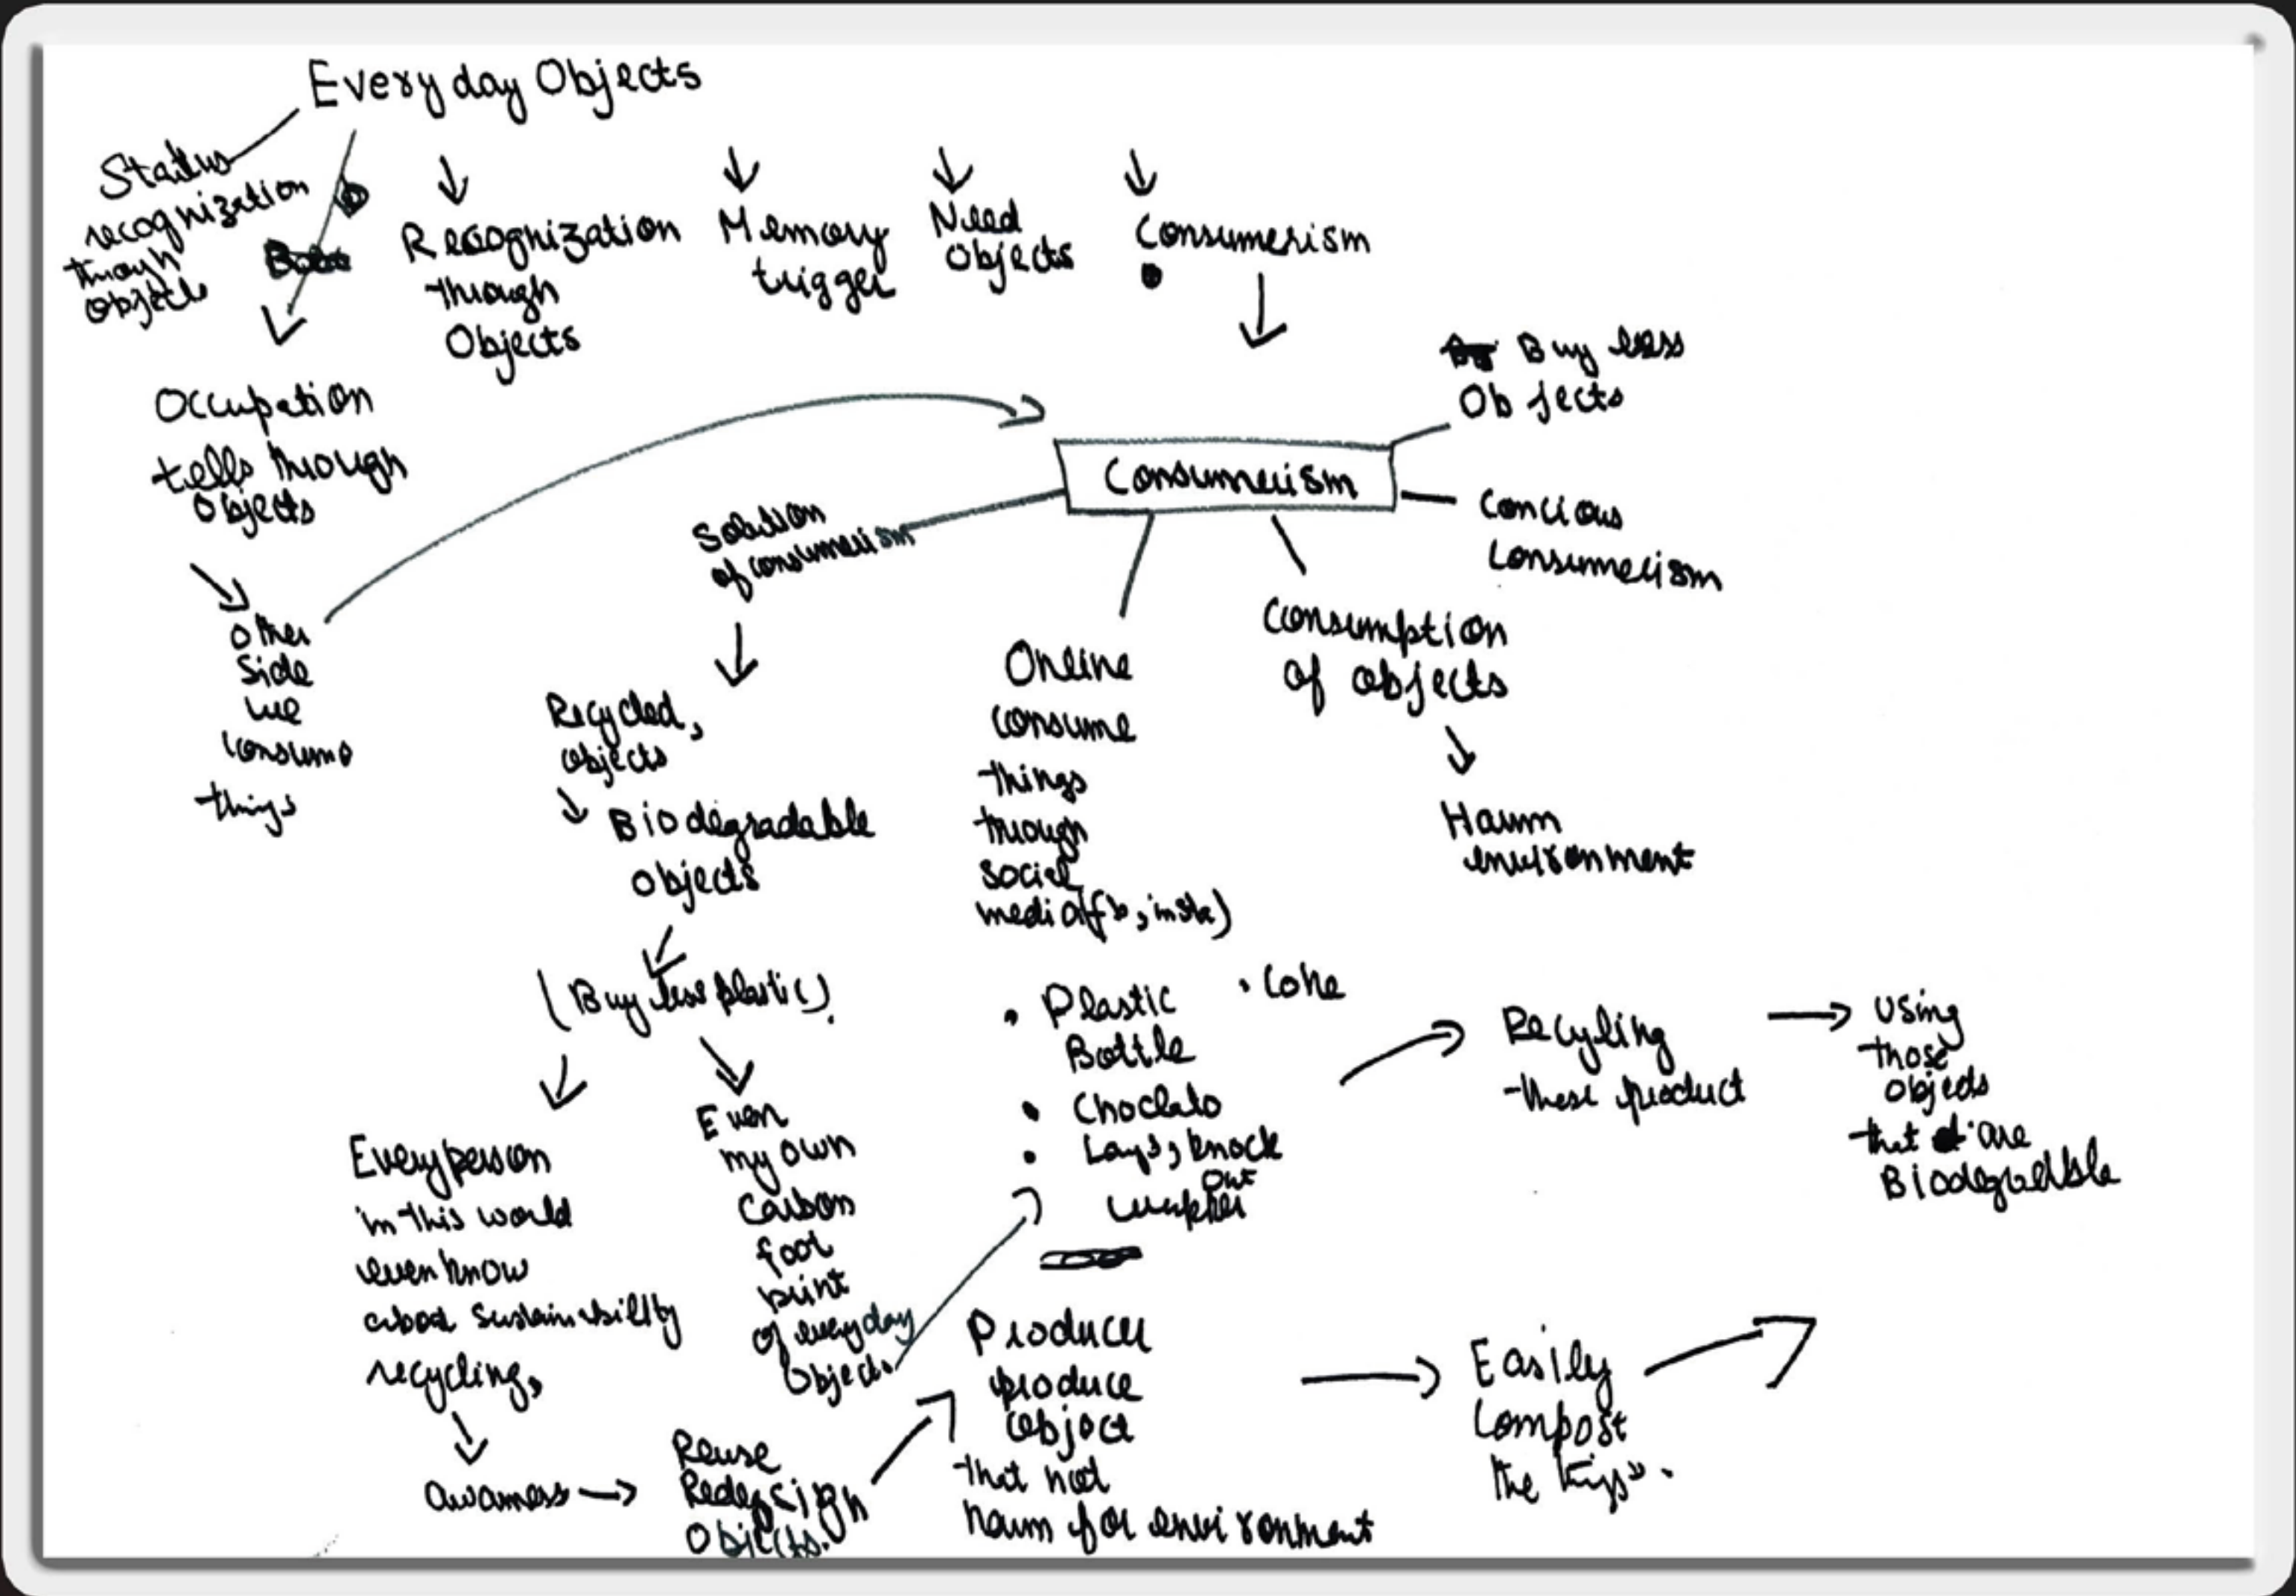 Everyday Objects
Status
recognization
through
objects
Recognization
through
Objects
Memory
trigger
Need
Objects
Consumerism
Occupation
tells through
Objects
Other
Side
we
consume
things
Consumerism
Buy less
Objects
Concious
Consumerism
Solution
of consumerism
Online
consume
things
through
social
media(fb, insta)
Consumption
of objects
Harm
environment
Recycled,
objects
Biodegradable
objects
(Buy less plastic).
Every person
in this world
even know
about sustainability
recycling,
awarness
Even
my own
Carbon
foot
print
of everyday
Objects.
Reuse
Redesign
Objects.
• Plastic
Bottle
• Coke
• Choclate
• Lays, knock
out
wrapper
Recyling
these product
Using
those
objects
that are
Biodegradble
Producer
produce
object
that not
harm for environment
Easily
Compost
the